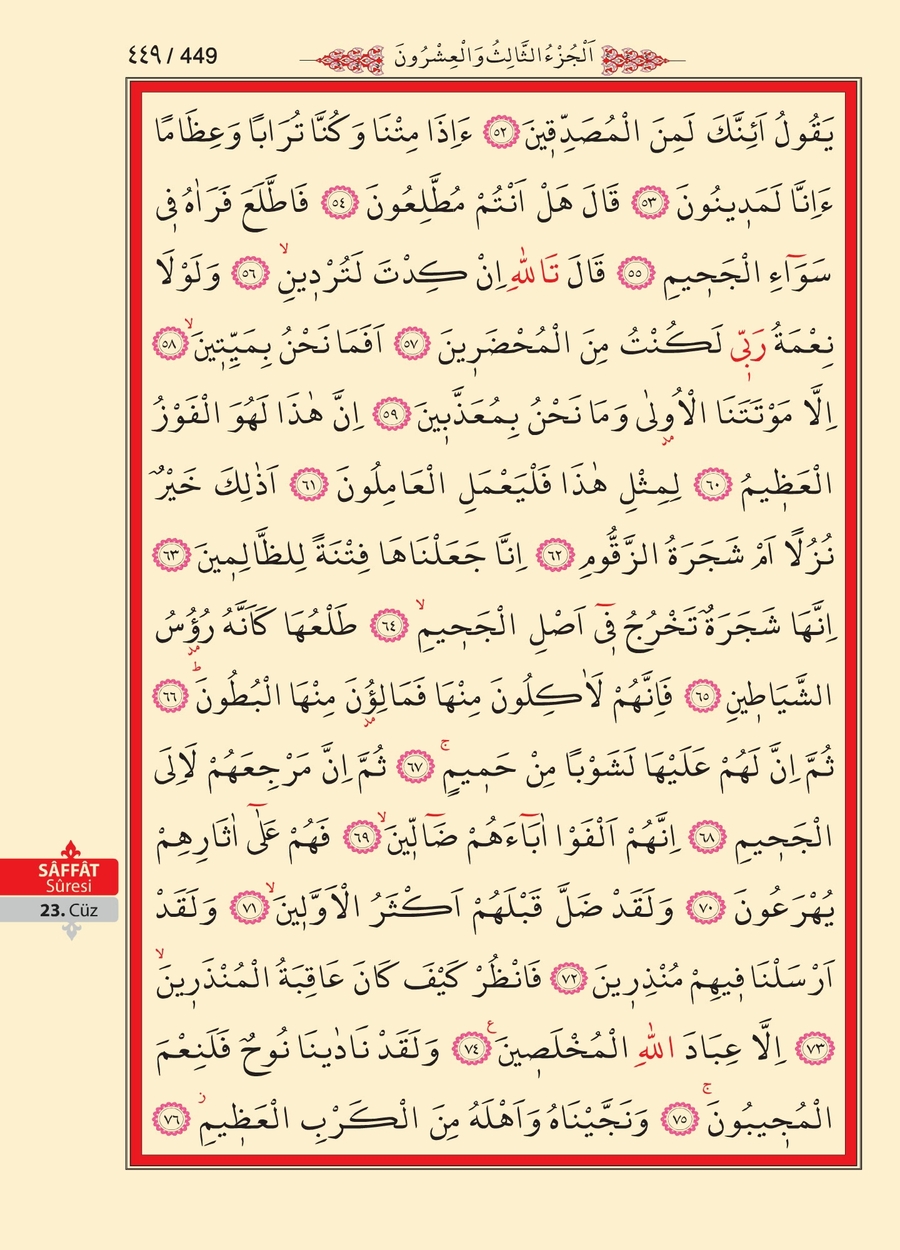 ٤٤٩ / 449
اَلْجُزْءُ الثَّالِثُ وَالْعِشْرُونَ
يَقُولُ اَئِنَّكَ لَمِنَ الْمُصَدِّقٖينَ ﴿٥٢﴾ ءَاِذَا مِتْنَا وَكُنَّا تُرَابًا وَعِظَامًا
ءَاِنَّا لَمَدٖينُونَ ﴿٥٣﴾ قَالَ هَلْ اَنْتُمْ مُطَّلِعُونَ ﴿٥٤﴾ فَاطَّلَعَ فَرَاٰهُ فٖى
سَوَٓاءِ الْجَحٖيمِ ﴿٥٥﴾ قَالَ تَاللّٰهِ اِنْ كِدْتَ لَتُرْدٖينِۙ ﴿٥٦﴾ وَلَوْلَا
نِعْمَةُ رَبّٖى لَكُنْتُ مِنَ الْمُحْضَرٖينَ ﴿٥٧﴾ اَفَمَا نَحْنُ بِمَيِّتٖينَۙ ﴿٥٨﴾
اِلَّا مَوْتَتَنَا الْاُو۫لٰى وَمَا نَحْنُ بِمُعَذَّبٖينَ ﴿٥٩﴾ اِنَّ هٰذَا لَهُوَ الْفَوْزُ
الْعَظٖيمُ ﴿٦٠﴾ لِمِثْلِ هٰذَا فَلْيَعْمَلِ الْعَامِلُونَ ﴿٦١﴾ اَذٰلِكَ خَيْرٌ
نُزُلًا اَمْ شَجَرَةُ الزَّقُّومِ ﴿٦٢﴾ اِنَّا جَعَلْنَاهَا فِتْنَةً لِلظَّالِمٖينَ ﴿٦٣﴾
اِنَّهَا شَجَرَةٌ تَخْرُجُ فٖٓى اَصْلِ الْجَحٖيمِۙ ﴿٦٤﴾ طَلْعُهَا كَاَنَّهُ رُؤُ۫سُ
الشَّيَاطٖينِ ﴿٦٥﴾ فَاِنَّهُمْ لَاٰكِلُونَ مِنْهَا فَمَالِؤُ۫نَ مِنْهَا الْبُطُونَۜ ﴿٦٦﴾
ثُمَّ اِنَّ لَهُمْ عَلَيْهَا لَشَوْبًا مِنْ حَمٖيمٍۚ ﴿٦٧﴾ ثُمَّ اِنَّ مَرْجِعَهُمْ لَاِلَى
الْجَحٖيمِ ﴿٦٨﴾ اِنَّهُمْ اَلْفَوْا اٰبَٓاءَهُمْ ضَٓالّٖينَۙ ﴿٦٩﴾ فَهُمْ عَلٰٓى اٰثَارِهِمْ
يُهْرَعُونَ ﴿٧٠﴾ وَلَقَدْ ضَلَّ قَبْلَهُمْ اَكْثَرُ الْاَوَّلٖينَۙ ﴿٧١﴾ وَلَقَدْ
اَرْسَلْنَا فٖيهِمْ مُنْذِرٖينَ ﴿٧٢﴾ فَانْظُرْ كَيْفَ كَانَ عَاقِبَةُ الْمُنْذَرٖينَۙ
﴿٧٣﴾ اِلَّا عِبَادَ اللّٰهِ الْمُخْلَصٖينَ ع ﴿٧٤﴾ وَلَقَدْ نَادٰينَا نُوحٌ فَلَنِعْمَ
الْمُجٖيبُونَۚ ﴿٧٥﴾ وَنَجَّيْنَاهُ وَاَهْلَهُ مِنَ الْكَرْبِ الْعَظٖيمِ ز ﴿٧٦﴾
SÂFFÂT
Sûresi
23. Cüz